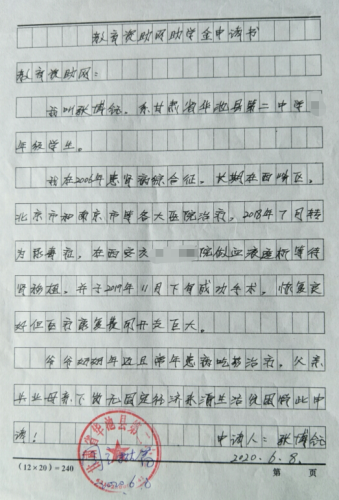 教育援助网助学金申请书
教育援助网：
我叫耿博纪。系甘肃省华池县第二中学
年级学生。
我在2006年患肾病综合征。长期在西峰区、
北京市和南京市等各大医院治疗，2018年7月转
为尿毒症，在西安交 院做血液透析等待
肾移植。并于2019年11月下旬成功手术。恢复良
好但医疗康复费用开支巨大。
爷爷奶奶年迈且常年患病吃药治疗。父亲
失业母亲下岗无固定经济来源生活很困难此申
请！ 申请人：耿博纪
2020.6.8.
(12×20)=240 第 页